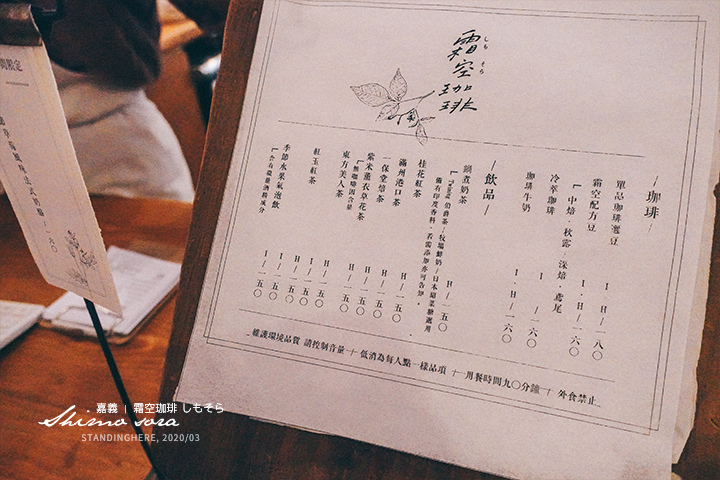 霜空珈琲
しもそら
－珈琲－
單品珈琲選豆 I．H／一八〇
霜空配方豆 I．H／一六〇
［中焙．秋露／深焙．鳶尾
冷萃珈琲 I／一六〇
珈琲牛奶 I．H／一六〇
－飲品－
鍋煮奶茶 H／一五〇
桂花紅茶 H／一五〇
滿州港口茶 H／一五〇
一保堂焙茶 H／一五〇
紫米薰衣草花茶 H／一五〇
［無咖啡因含量
東方美人茶 H／一五〇
紅玉紅茶 I／一五〇
季節水果氣泡飲 I／一五〇
［含有微量酒精成分
維護環境品質 請控制音量 ＋ 低消為每人點一樣品項 ＋ 用餐時間九〇分鐘 ＋ 外食禁止
間限定
草莓風味法式奶酪 一六〇
．嘉義 | 霜空珈琲 しもそら
Shimo sora
STANDINGHERE, 2020/03